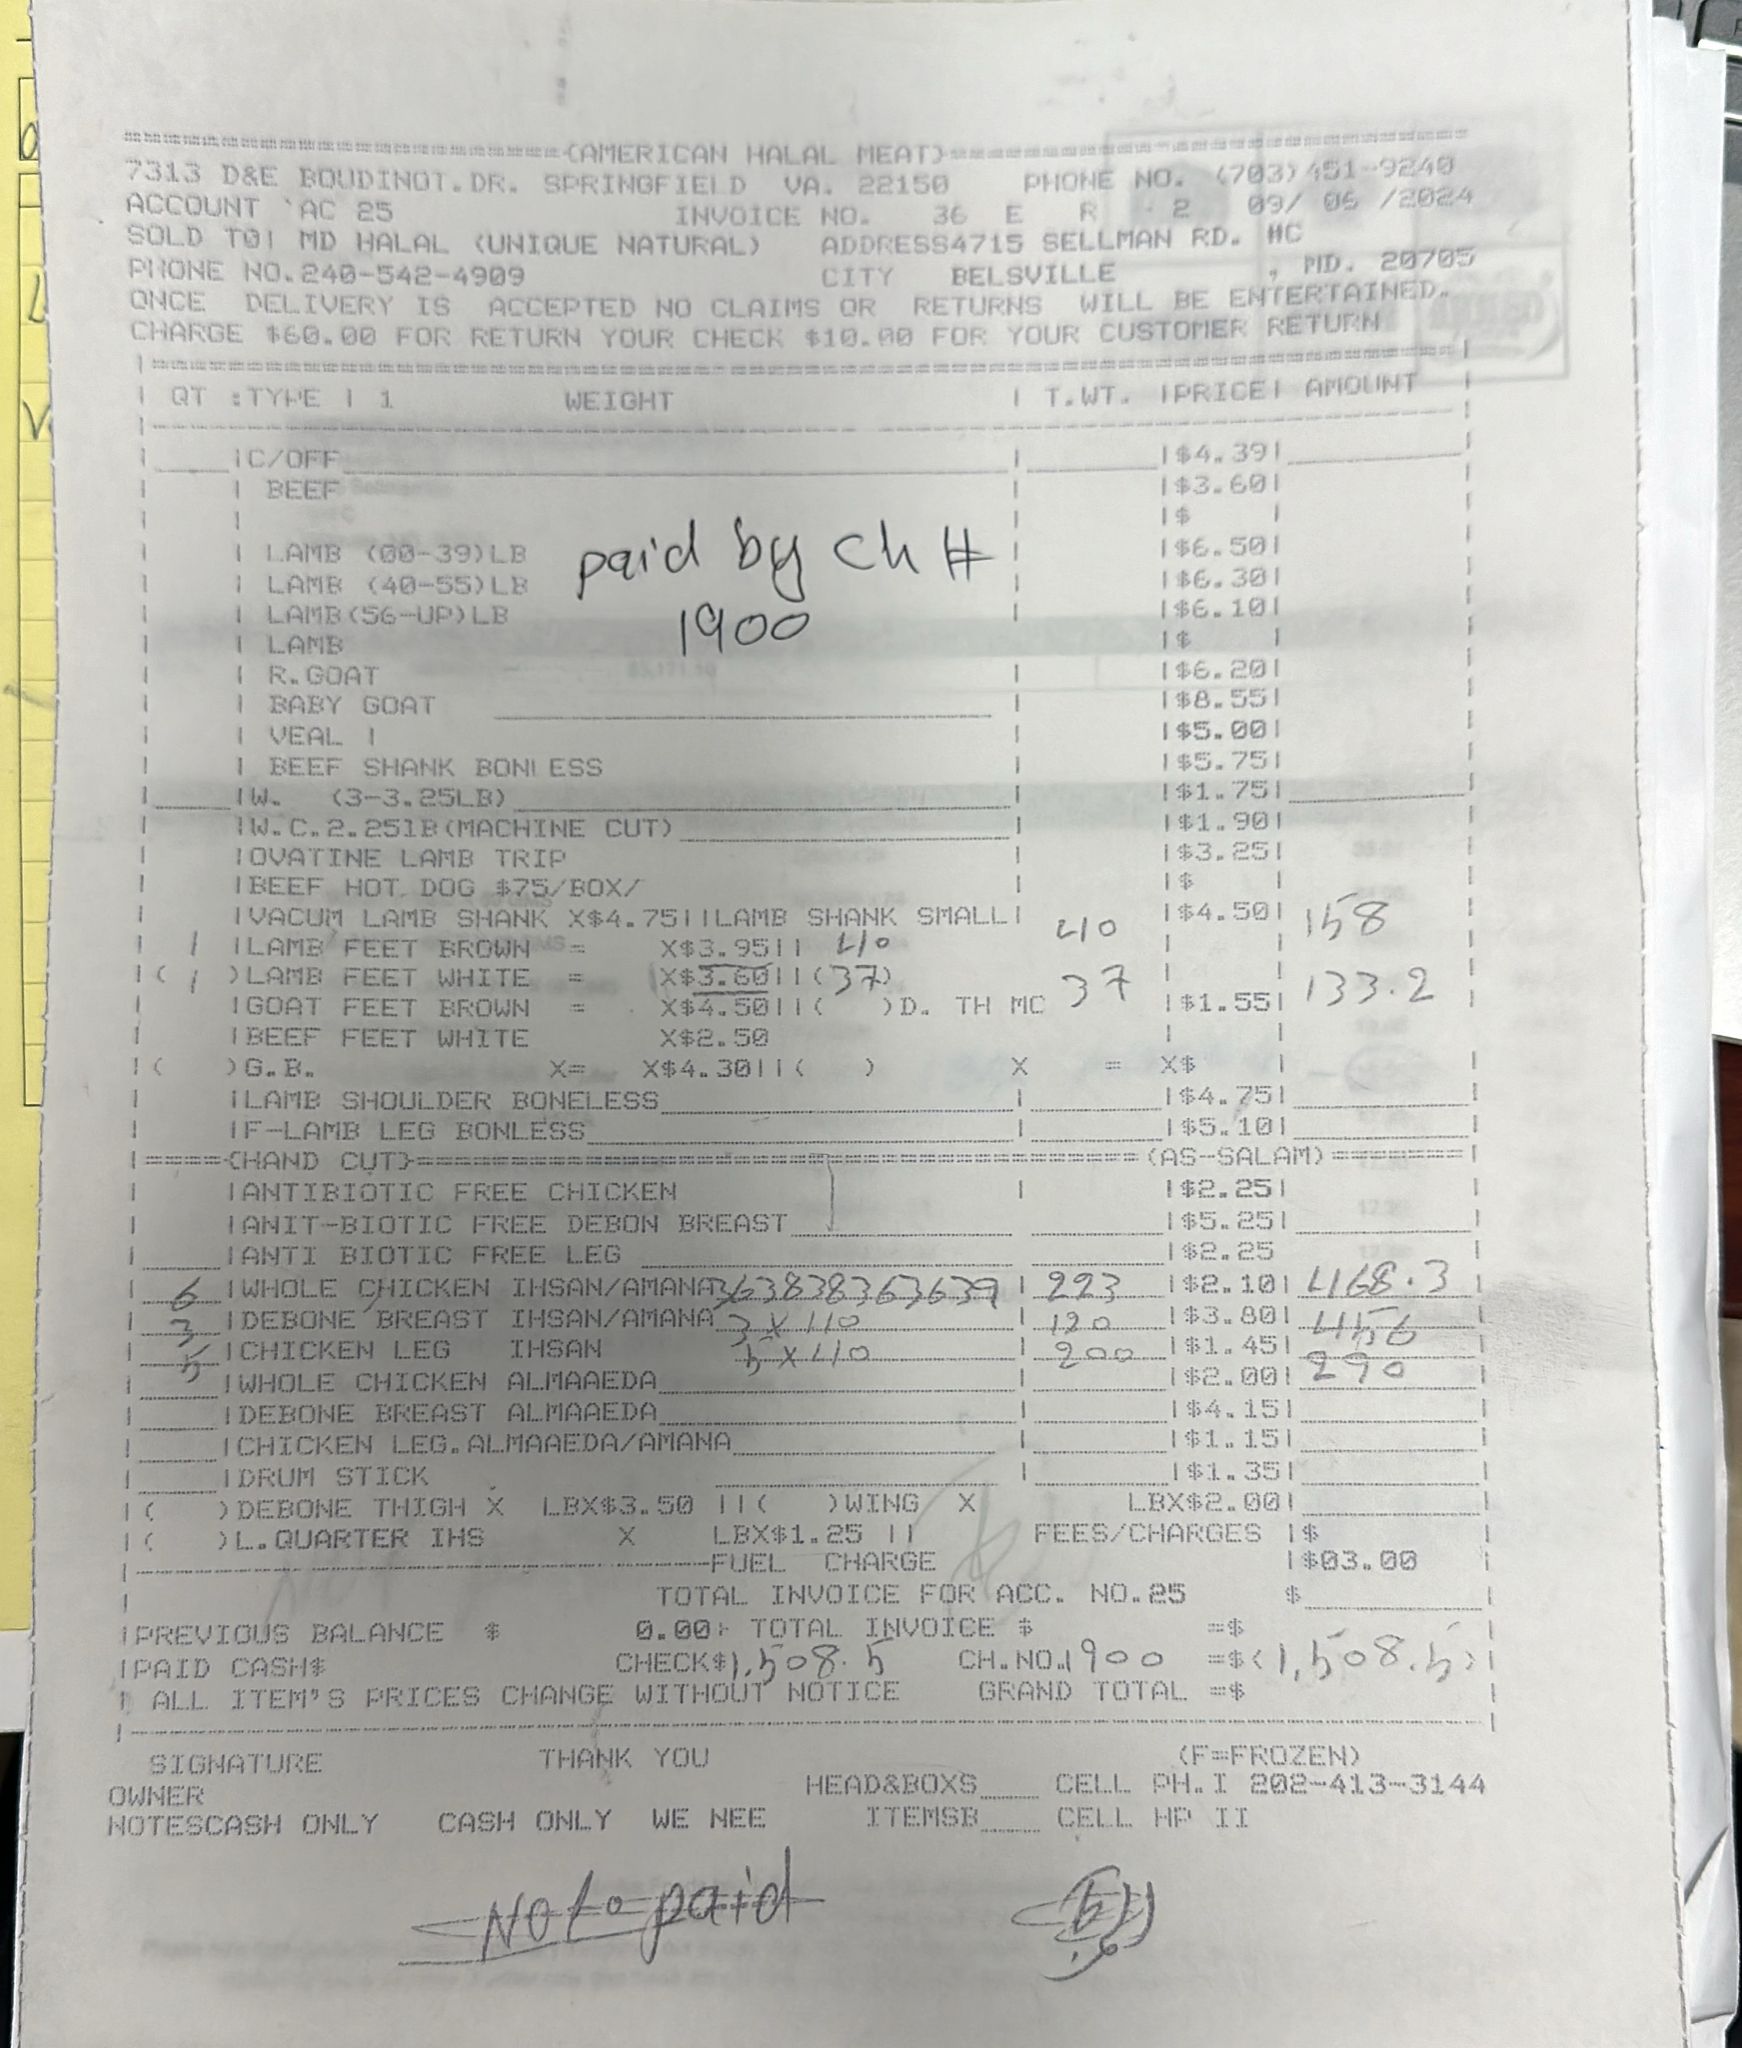 (AMERICAN HALAL MEAT)
7313 D&E BOUDINOT.DR. SPRINGFIELD VA. 22150 PHONE NO. (703)451-9240
ACCOUNT 'AC 25 INVOICE NO. 36 E R 2 09/ 06 /2024
SOLD TO| MD HALAL (UNIQUE NATURAL) ADDRESS4715 SELLMAN RD. #C
PHONE NO.240-542-4909 CITY BELSVILLE , MD. 20705
ONCE DELIVERY IS ACCEPTED NO CLAIMS OR RETURNS WILL BE ENTERTAINED.
CHARGE $60.00 FOR RETURN YOUR CHECK $10.00 FOR YOUR CUSTOMER RETURN
QT :TYPE | 1 WEIGHT | T.WT. |PRICE| AMOUNT
|C/OFF |$4.39|
| BEEF |$3.60|
|$ |
| LAMB (00-39)LB paid by ch # |$6.50|
| LAMB (40-55)LB |$6.30|
| LAMB(56-UP)LB 1900 |$6.10|
| LAMB |$ |
| R.GOAT |$6.20|
| BABY GOAT |$8.55|
| VEAL | |$5.00|
| BEEF SHANK BONLESS |$5.75|
|W. (3-3.25LB) |$1.75|
|W.C.2.25lB(MACHINE CUT) |$1.90|
|OVATINE LAMB TRIP |$3.25|
|BEEF HOT DOG $75/BOX/ |$ |
|VACUM LAMB SHANK X$4.75||LAMB SHANK SMALL| |$4.50|
1 |LAMB FEET BROWN = X$3.95|| 40 40 158
( 1 )LAMB FEET WHITE = X$3.60||(37) 37 133.2
|GOAT FEET BROWN = X$4.50||( )D. TH MC |$1.55|
|BEEF FEET WHITE X$2.50
( )G.B. X= X$4.30||( ) X = X$
|LAMB SHOULDER BONELESS |$4.75|
|F-LAMB LEG BONLESS |$5.10|
(HAND CUT) (AS-SALAM)
|ANTIBIOTIC FREE CHICKEN |$2.25|
|ANIT-BIOTIC FREE DEBON BREAST |$5.25|
|ANTI BIOTIC FREE LEG |$2.25
6 |WHOLE CHICKEN IHSAN/AMANA 363838363639 | 223 |$2.10| 468.3
3 |DEBONE BREAST IHSAN/AMANA 3 x 40 120 |$3.80| 456
5 |CHICKEN LEG IHSAN 5 x 40 200 |$1.45| 290
|WHOLE CHICKEN ALMAAEDA |$2.00|
|DEBONE BREAST ALMAAEDA |$4.15|
|CHICKEN LEG.ALMAAEDA/AMANA |$1.15|
|DRUM STICK |$1.35|
( )DEBONE THIGH X LBX$3.50 ||( )WING X LBX$2.00|
( )L.QUARTER IHS X LBX$1.25 || FEES/CHARGES |$
FUEL CHARGE |$03.00
TOTAL INVOICE FOR ACC. NO.25 $
|PREVIOUS BALANCE $ 0.00+ TOTAL INVOICE $ =$
|PAID CASH$ CHECK$1,508.5 CH.NO.1900 =$<1,508.5>
| ALL ITEM'S PRICES CHANGE WITHOUT NOTICE GRAND TOTAL =$
SIGNATURE THANK YOU (F=FROZEN)
OWNER HEAD&BOXS CELL PH.I 202-413-3144
NOTESCASH ONLY CASH ONLY WE NEE ITEMSB CELL HP II
Not paid